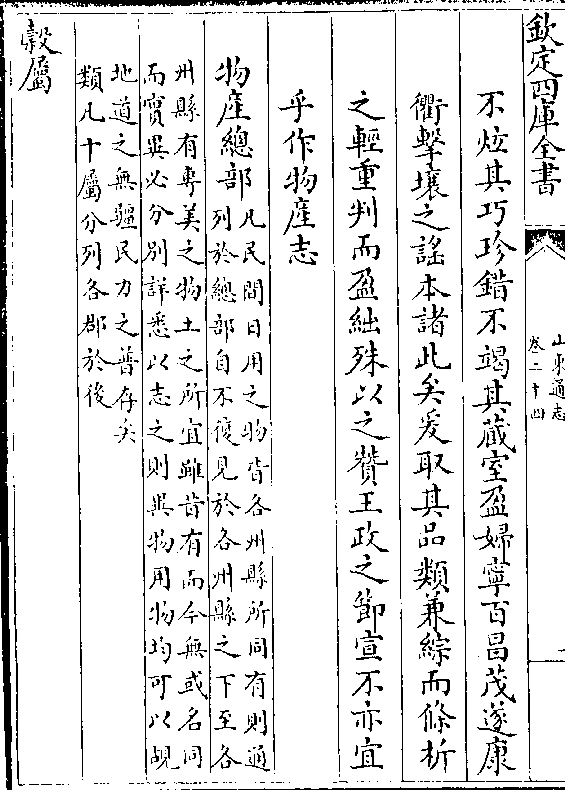 欽定四庫全書
山東通志
卷二十四
不炫其巧珍錯不竭其藏室盈婦寧百昌茂遂康
衢擊壤之謠本諸此矣爰取其品類兼綜而條析
之輕重判而盈絀殊以之贊王政之節宣不亦宜
乎作物產志
物產總部
凡民間日用之物皆各州縣所同有則通
列於總部自不復見於各州縣之下至各
州縣有專美之物土之所宜雖昔有而今無或名同
而實異必分別詳悉以志之則異物用物均可以覘
地道之無疆民力之普存矣
類凡十屬分列各郡於後
穀屬